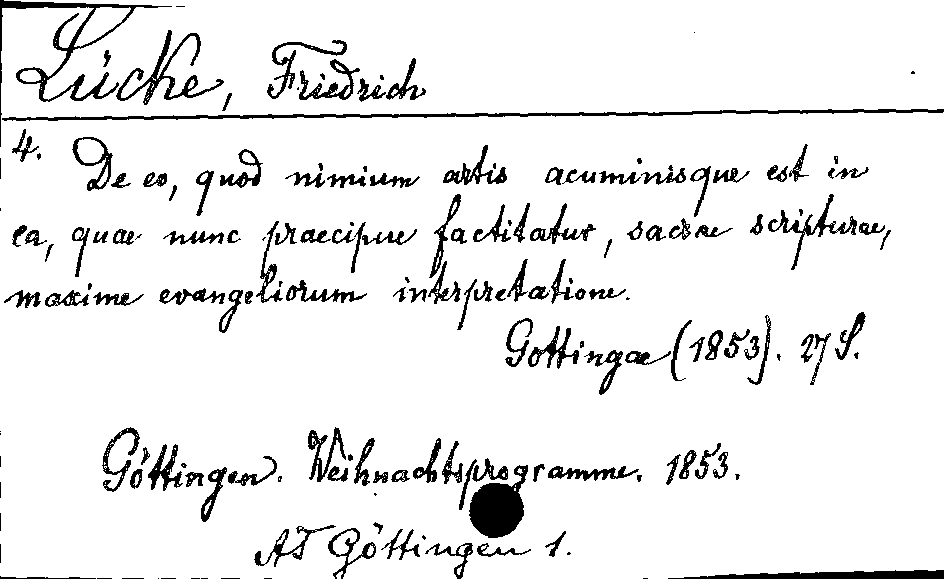 Lücke, Friedrich
4. De eo, quod nimium artis acuminisque est in
ea, quae nunc praecipue factitatur, sacrae scripturae,
maxime evangeliorum interpretatione.
Gottingae (1853). 27 S.
Göttingen. Weihnachtsprogramme. 1853.
AT Göttingen 1.